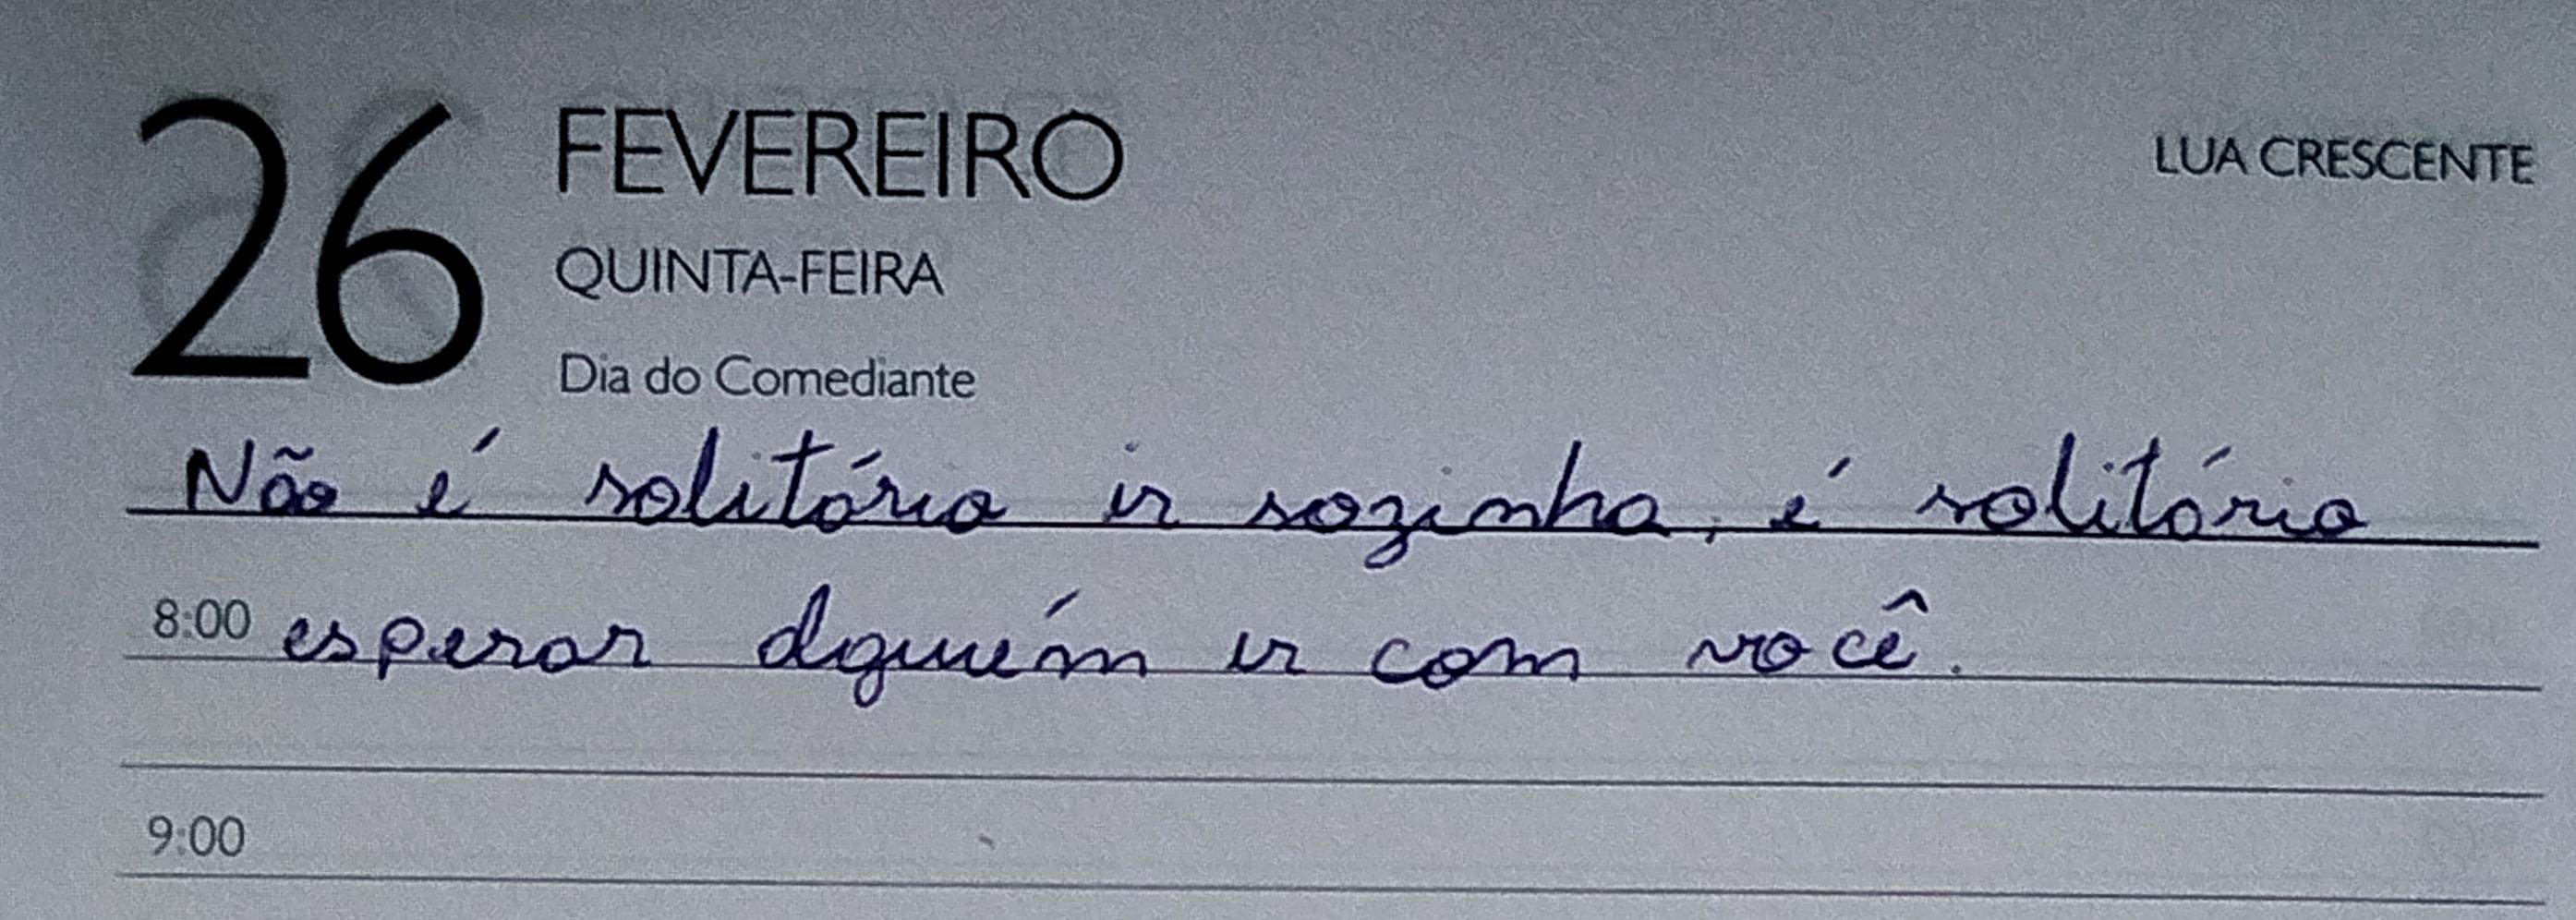 26 FEVEREIRO LUA CRESCENTE
QUINTA-FEIRA
Dia do Comediante
Não é solitário ir sozinha, é solitário
8:00 esperar alguém ir com você.
9:00